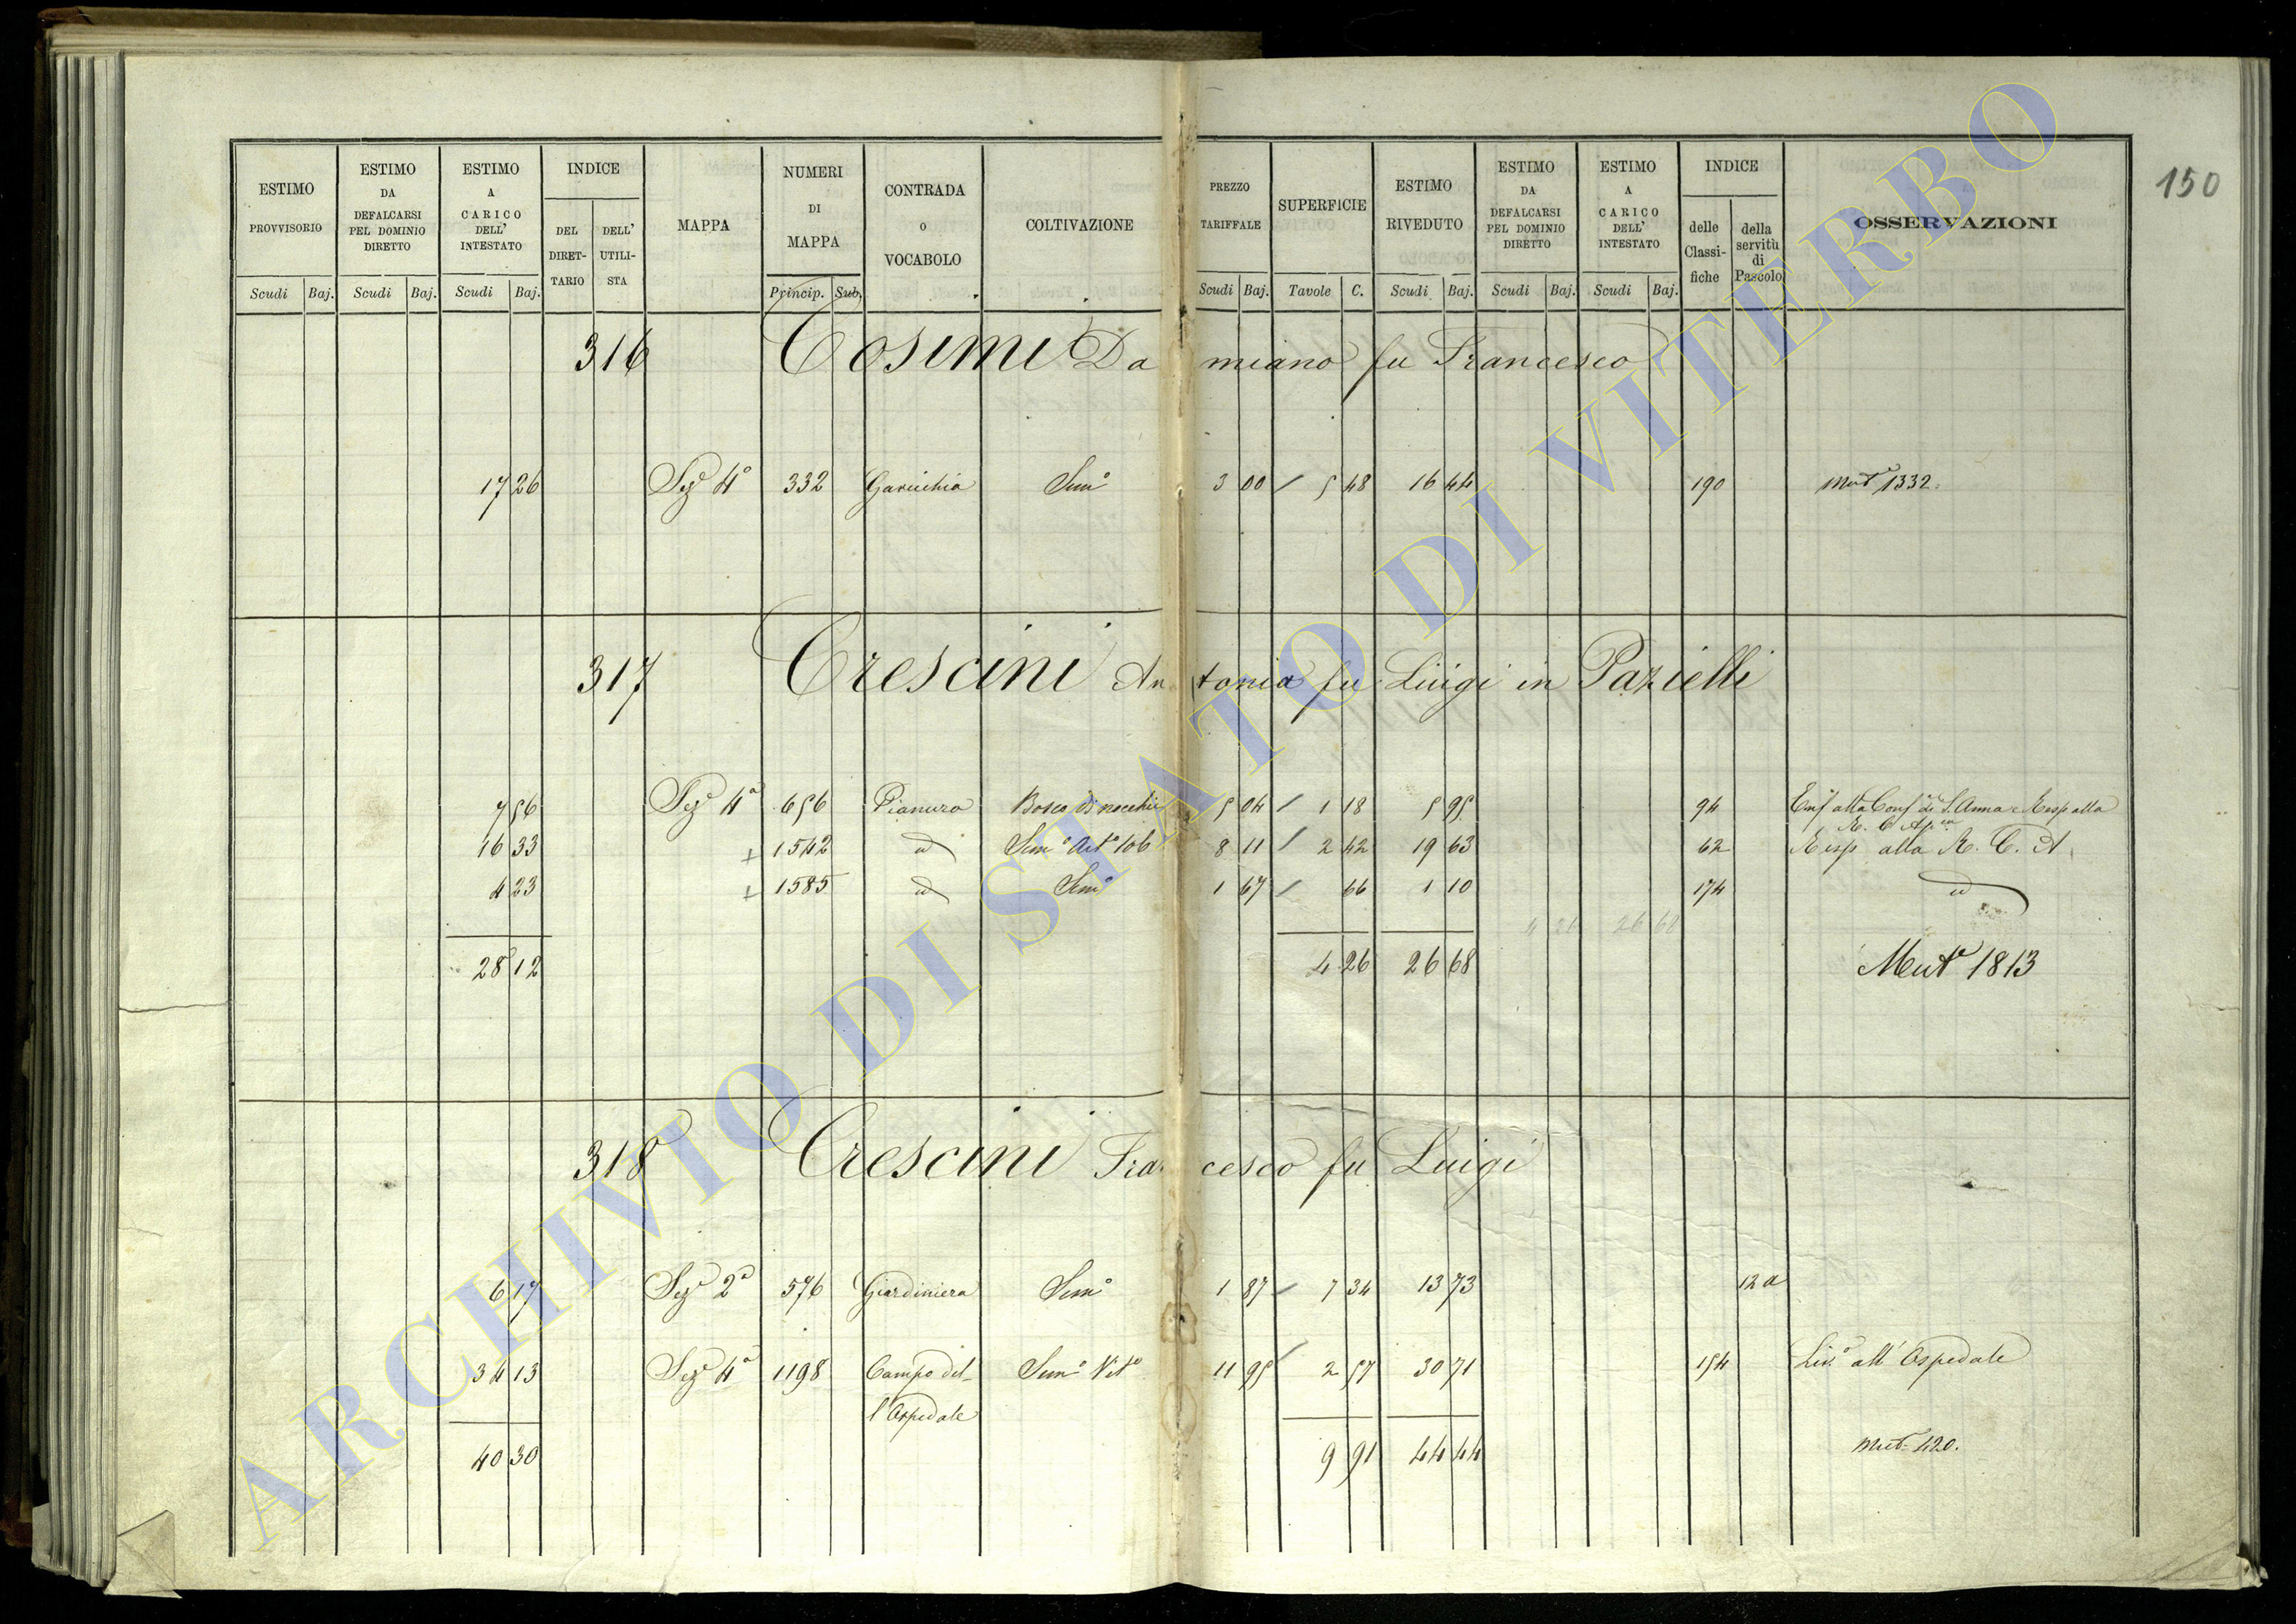 150
ESTIMO PROVVISORIO
ESTIMO DA DEFALCARSI PEL DOMINIO DIRETTO
ESTIMO A CARICO DELL' INTESTATO
INDICE
DEL DIRET-TARIO
DELL' UTILI-STA
MAPPA
NUMERI DI MAPPA
CONTRADA O VOCABOLO
COLTIVAZIONE
PREZZO TARIFFALE
SUPERFICIE
ESTIMO RIVEDUTO
ESTIMO DA DEFALCARSI PEL DOMINIO DIRETTO
ESTIMO A CARICO DELL' INTESTATO
INDICE
delle Classi-fiche
della servitù di Pascolo
OSSERVAZIONI
Scudi Baj. Scudi Baj. Scudi Baj. Princip. Sub. Scudi Baj. Tavole C. Scudi Baj. Scudi Baj. Scudi Baj.
316 Cosimi Damiano fu Francesco
17 26 Sez^e 4^a 332 Sem^o 3 00 / 5 48 16 44 190 Mut^a 1332.
317 Crescini Antonia fu Luigi in Pazielli
7 56 Sez^e 4^a 656 Pianura Bosco di nocchie 5 04 / 1 18 5 95 94 Enf^a alla Conf^a di S. Anna e Risp alla
R. C. Ap^ca
16 33 + 1542 id Sem^o Art^o 106 8 11 / 2 42 19 63 62 Risp alla R. C. A
4 23 + 1585 id Sem^o 1 67 / 66 1 10 174 id
26 68
28 12 4 26 26 68 Mut^a 1813
318 Crescini Francesco fu Luigi
6 17 Sez^e 2^a 576 Giardiniera Sem^o 1 87 / 7 34 13 73 12 a
34 13 Sez^e 4^a 1198 Campo del- Sem^o Vit^o 11 95 / 2 57 30 71 154 Liv^o all' Ospedale
l'Ospedale
40 30 9 91 44 44 Mut^a 420.
ARCHIVIO DI STATO DI VITERBO